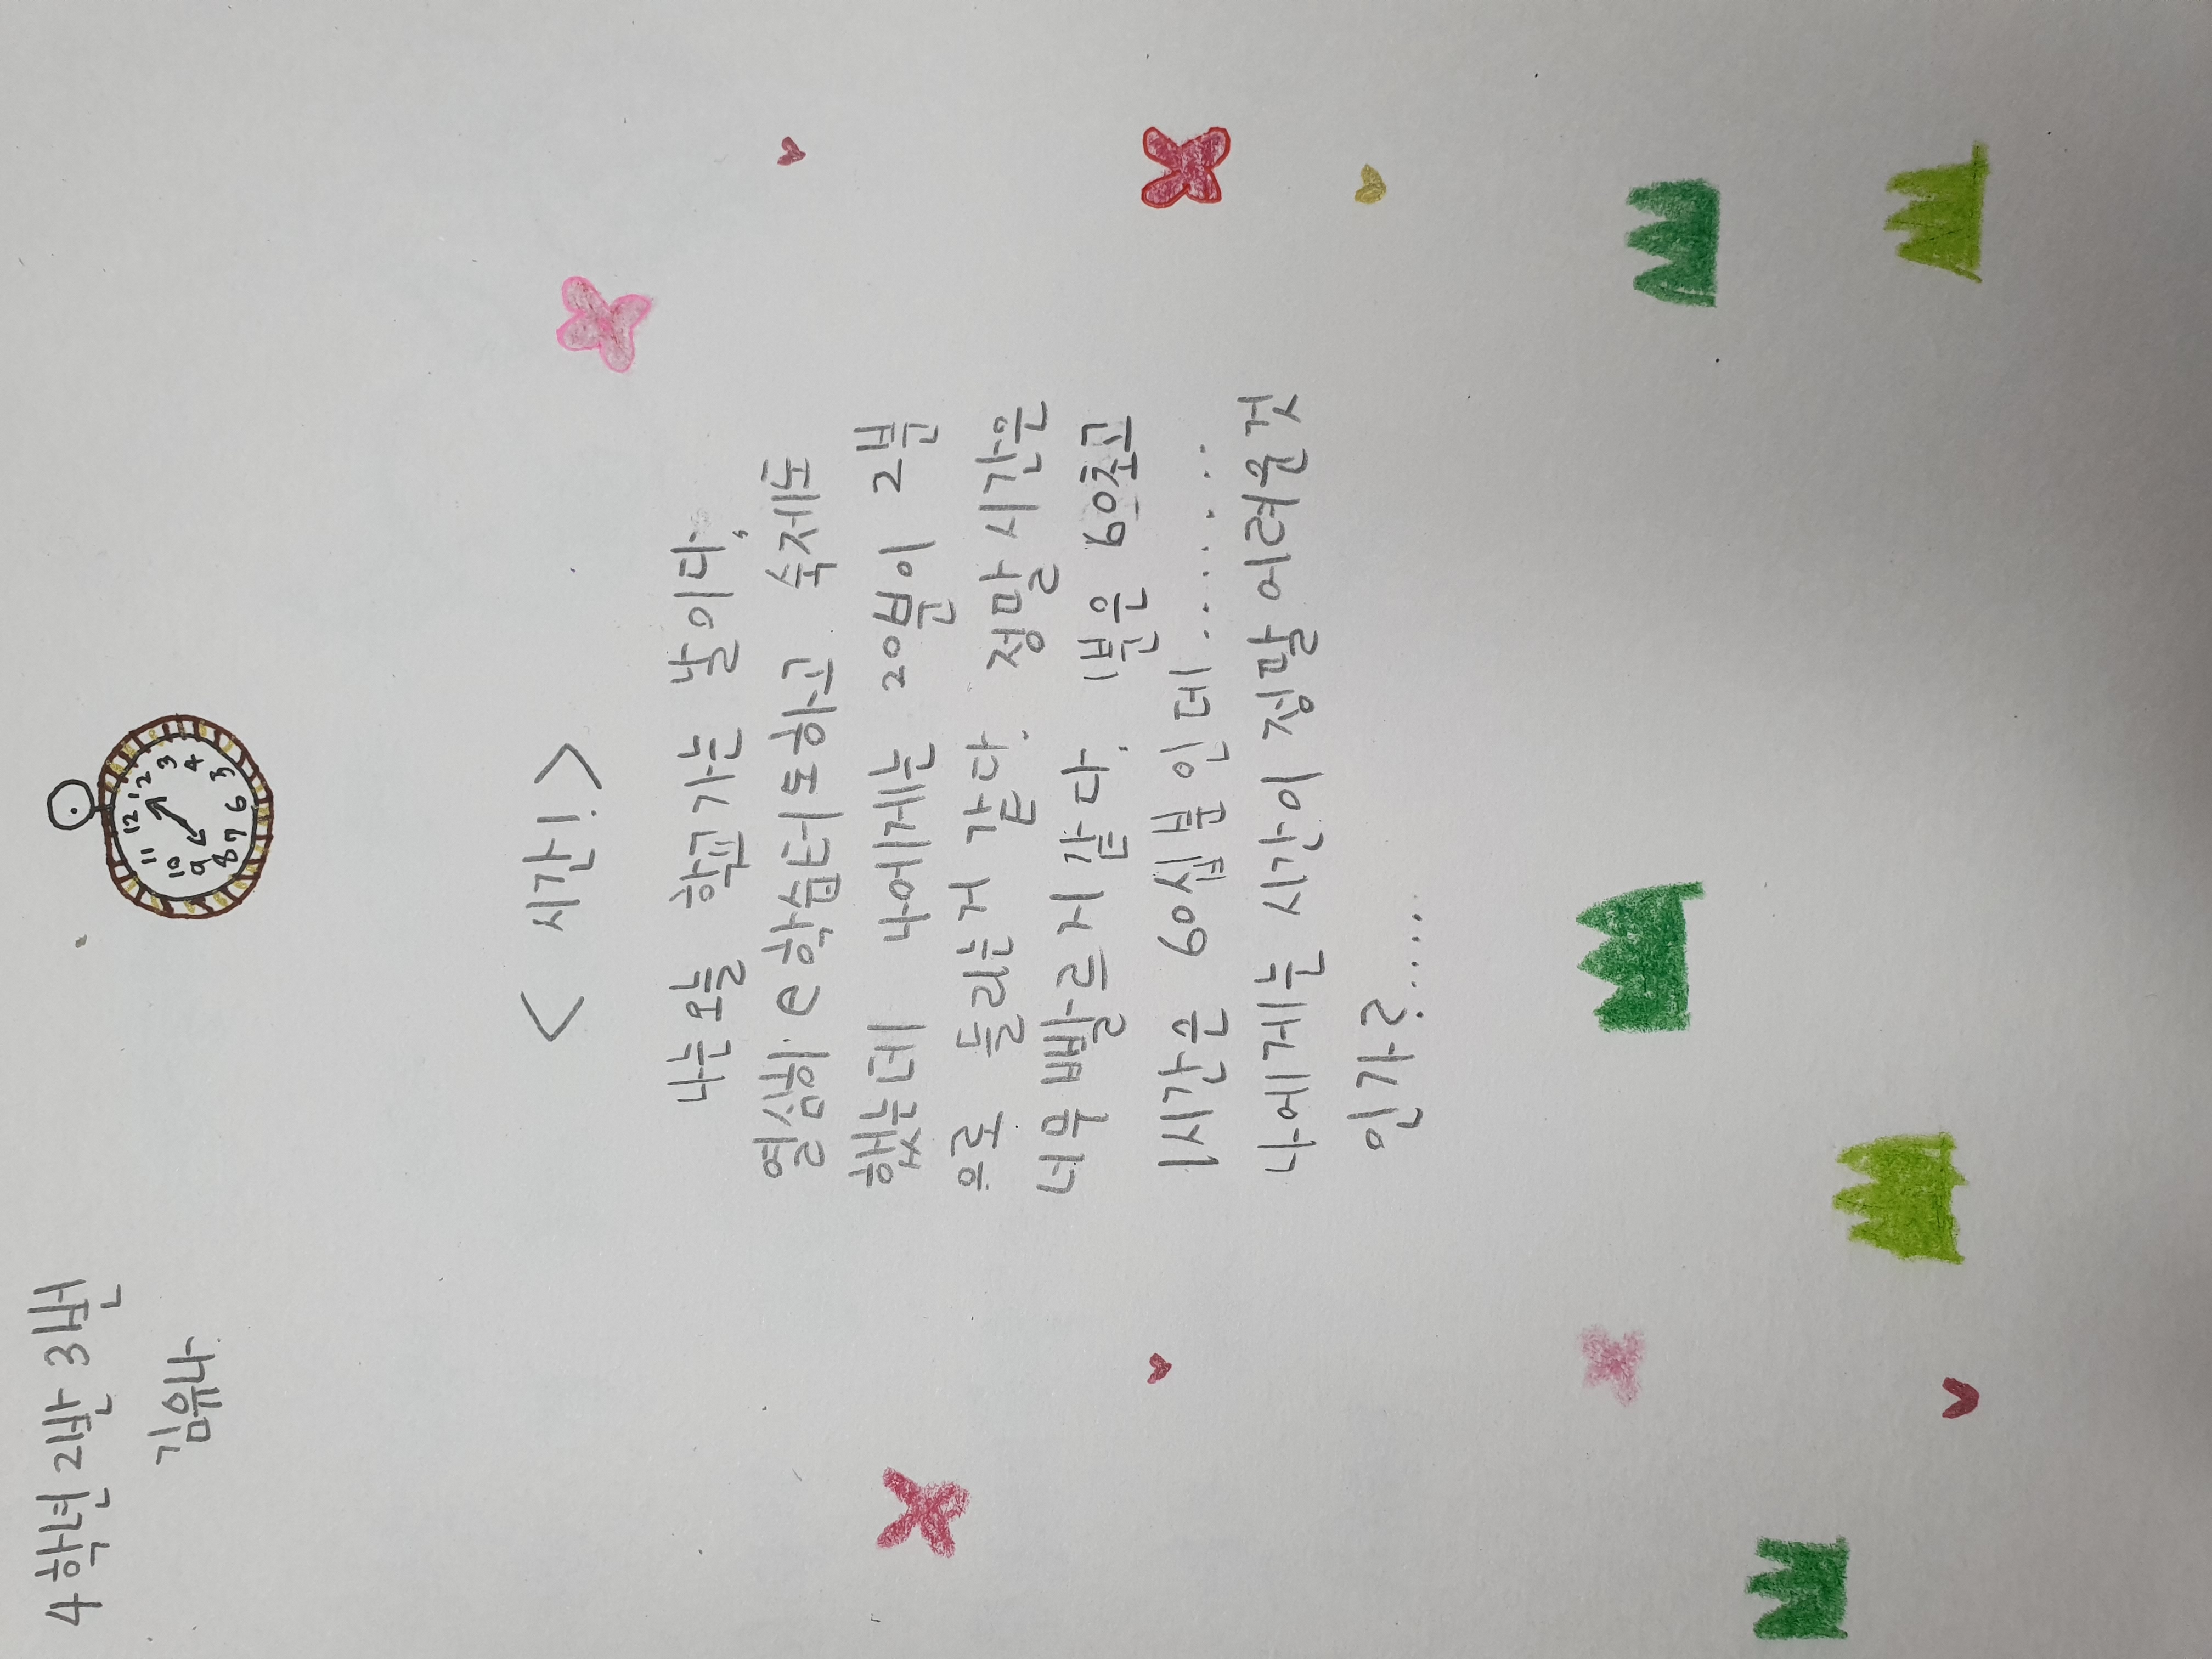 4학년 2반 3번
김유나
12 1 2 3 4 5 6 7 8 9 10 11
< 시간! >
나는오늘 학교가는 날이다,
열심히 e학습터도하고 숙제도
했는데 나에게는 20십분이 2분
으로 들리는거 같다. 정말 시간은
너무 빨르지 같다. 1분은 60초고
1시간은 60십분인데..........
나에게는 시간이 정말 어려운것
인가?.....